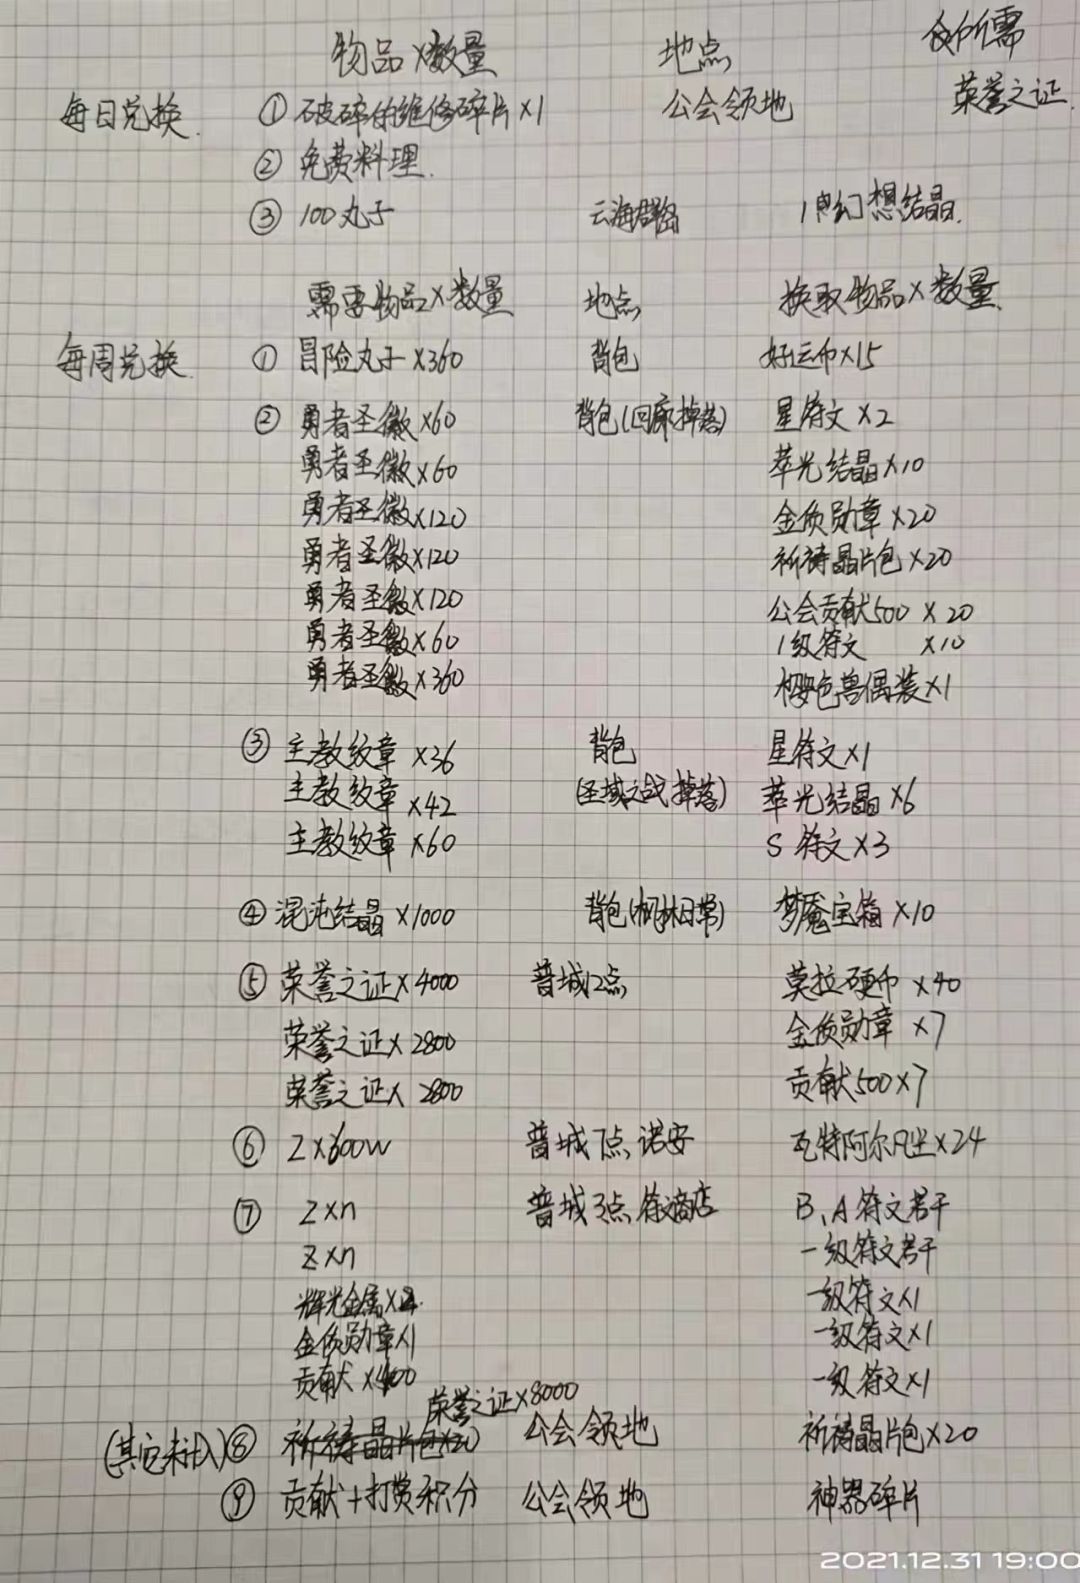 物品×数量 地点 所需
每日兑换 ① 破碎的维修碎片×1 公会领地 荣誉之证
② 免费料理
③ 100丸子 云海群岛 1 幻想结晶
需要物品×数量 地点 换取物品×数量
每周兑换 ① 冒险丸子×360 背包 好运币×15
② 勇者圣徽×60 背包(回廊掉落) 星符文×2
勇者圣徽×60 萃光结晶×10
勇者圣徽×120 金质勋章×20
勇者圣徽×120 祈祷晶片包×20
勇者圣徽×120 公会贡献500×20
勇者圣徽×60 1级符文×10
勇者圣徽×360 色兽偶装×1
③ 主教纹章×36 背包 星符文×1
主教纹章×42 (圣域之战掉落) 萃光结晶×6
主教纹章×60 S符文×3
④ 混沌结晶×1000 背包(枫林日常) 梦魇宝箱×10
⑤ 荣誉之证×4000 普城12点 莫拉硬币×40
荣誉之证×2800 金质勋章×7
荣誉之证×2800 贡献500×7
⑥ Z×600w 普城7点 诺安 瓦特阿尔凡尘×24
⑦ Z×n 普城3点 符文商店 B、A符文若干
Z×n 一级符文若干
辉光金属× 一级符文×1
金质勋章×1 一级符文×1
贡献×400 一级符文×1
荣誉之证×8000
(其它未计入) ⑧ 祈祷晶片包×20 公会领地 祈祷晶片包×20
⑨ 贡献+打赏积分 公会领地 神器碎片
2021.12.31 19:00